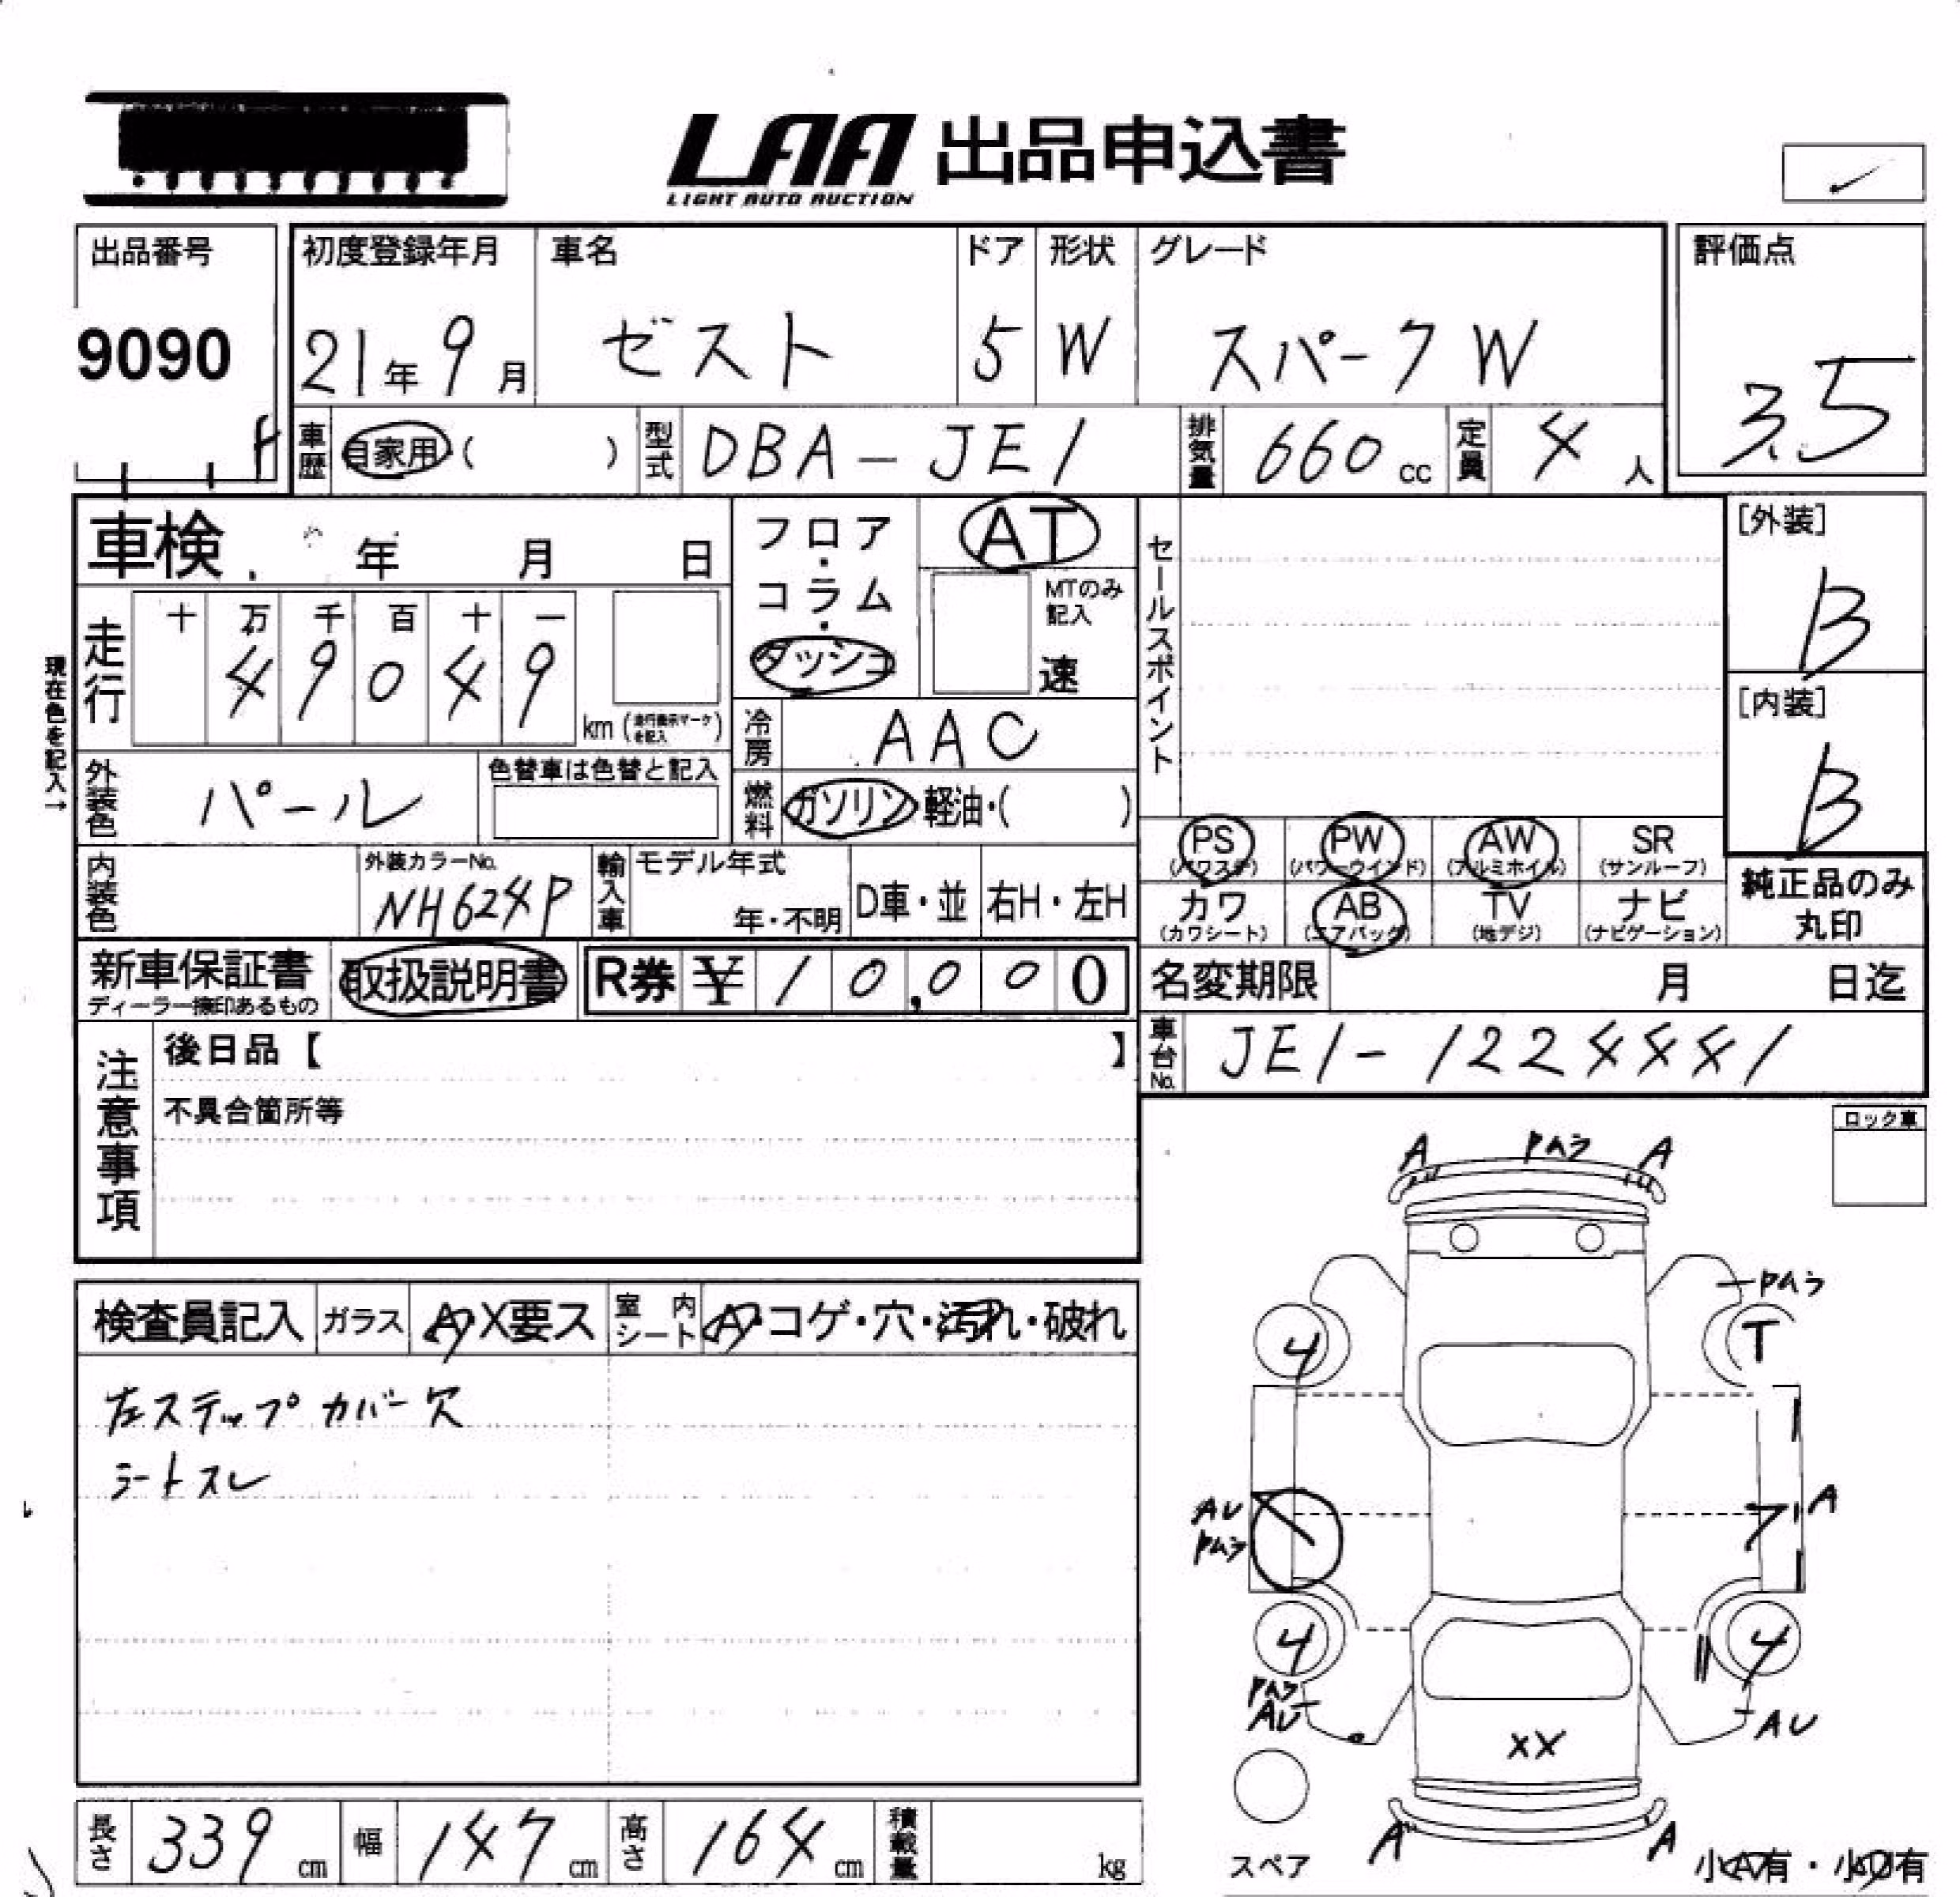 LAA 出品申込書
LIGHT AUTO AUCTION
出品番号
9090
初度登録年月
21年 9月
車名
ゼスト
ドア
5
形状
W
グレード
スパークW
評価点
3.5
車歴 自家用 ( )
型式 DBA-JE1
排気量 660 cc
定員 4 人
車検 年 月 日
走行
十 万 千 百 十 一
4 9 0 4 9
km (走行表示マークを記入)
現在色を記入→
フロア・コラム・ダッシュ
AT
MTのみ記入
速
冷房 AAC
燃料 ガソリン・軽油・( )
外装色 パール
色替車は色替と記入
内装色
外装カラーNo.
NH624P
輸入車
モデル年式
年・不明
D車・並
右H・左H
セールスポイント
[外装]
B
[内装]
B
PS (パワステ)
PW (パワーウインド)
AW (アルミホイル)
SR (サンルーフ)
カワ (カワシート)
AB (エアバッグ)
TV (地デジ)
ナビ (ナビゲーション)
純正品のみ丸印
新車保証書
ディーラー捺印あるもの
取扱説明書
R券 ¥10,000
名変期限 月 日迄
車台No. JE1-1224441
注意事項
後日品【 】
不具合箇所等
ロック車
検査員記入
ガラス A・X要ス
室内シート A・コゲ・穴・汚れ・破れ
左ステップカバー欠
シートスレ
A A
4 T
A
AU
4 4
AU AU
XX
A A
スペア
小A有・小U有
長さ 339 cm
幅 147 cm
高さ 164 cm
積載量 kg